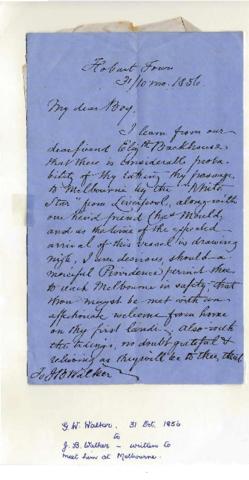 Hobart Town
31/10 mo. 1856
My dear Boy,
I learn from our
dear friend Elizth Backhouse,
that there is considerable proba-
bility of thy taking thy passage
to Melbourne by the "White
Star" from Liverpool, along with
our kind friend Chas Mould,
and as the time of the expected
arrival of this vessel is drawing
nigh, I am desirous, should a
merciful Providence permit thee
to reach Melbourne in safety, that
thou mayst be met with an
affectionate welcome from home
on thy first landing, also with
the tidings, no doubt grateful &
relieving as they will be to thee, that
To J B Walker
G. W. Walker, 31 Oct. 1856
to
J. B. Walker – written to
meet him at Melbourne.